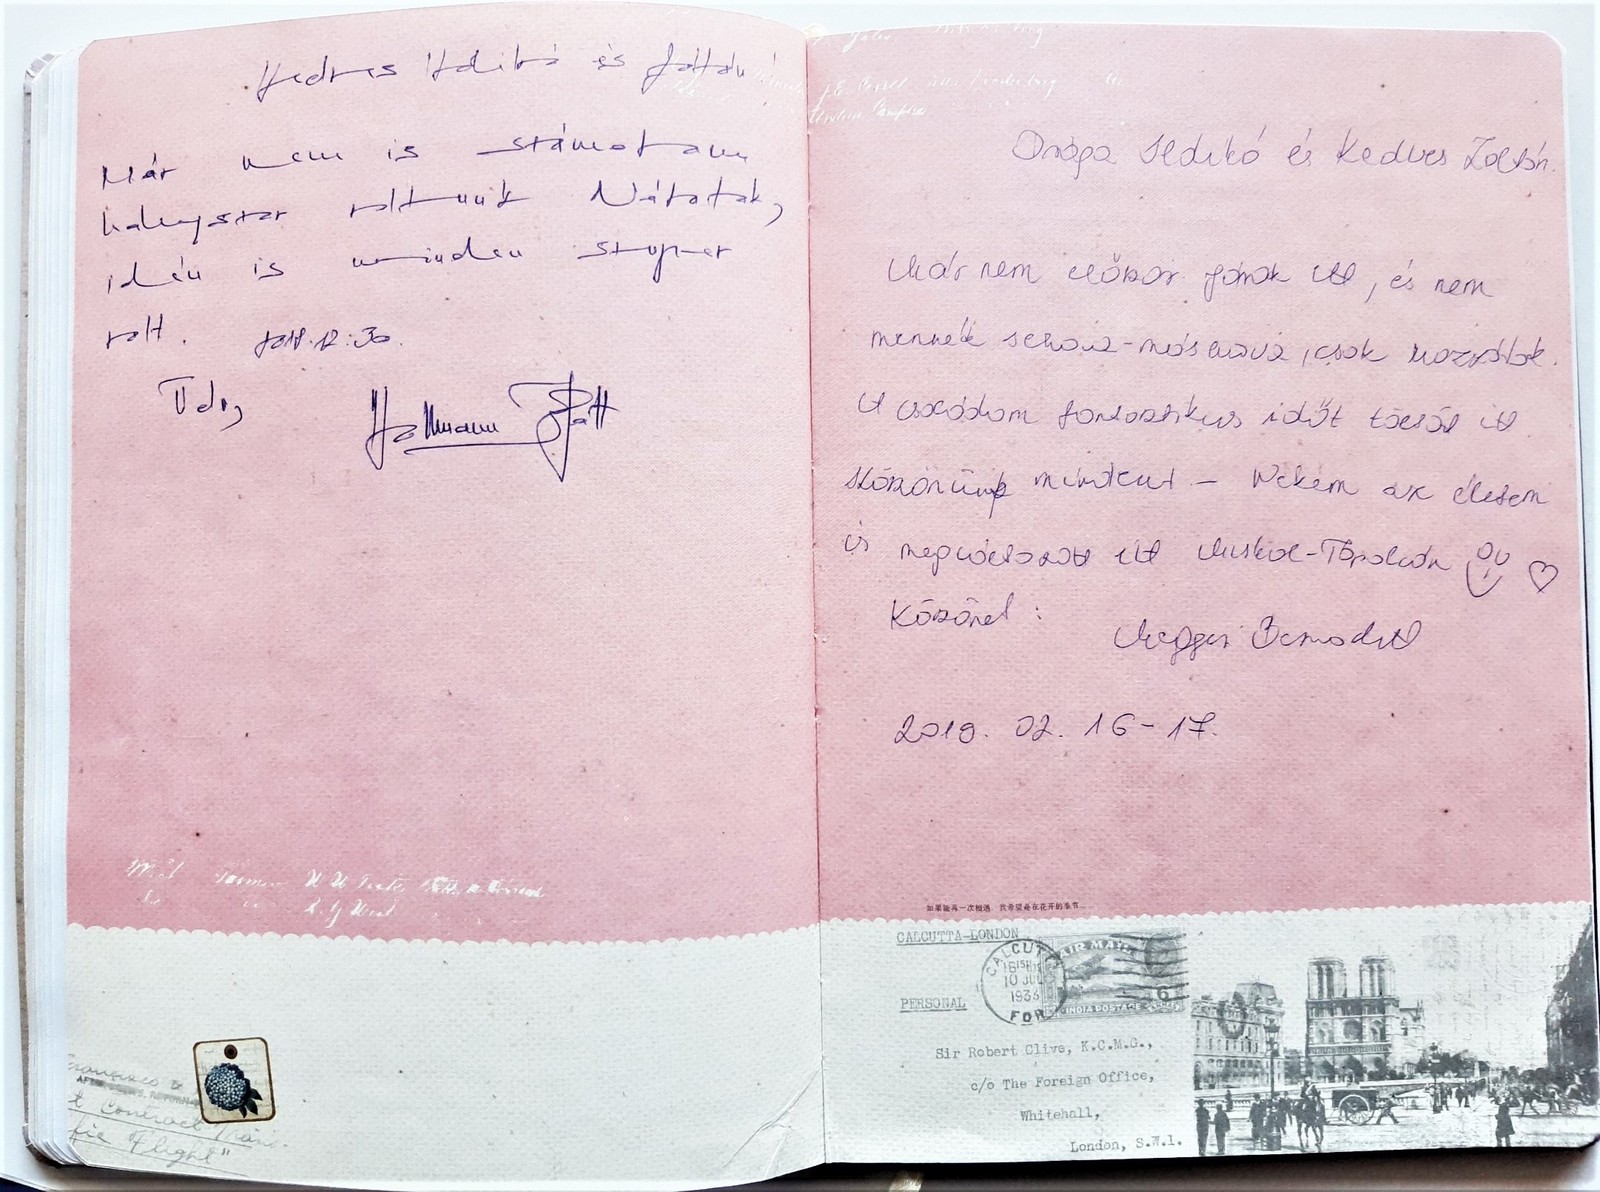 Kedves Ildikó és Zoltán!
Már nem is számolom
hányszor voltunk Nálatok,
idén is minden szuper
volt. 2018.12.30.
Üdv,
Hallmann Zsolt
Mrs
Drága Ildikó és Kedves Zoltán.
Már nem először járok itt, és nem
mennék sehova-máshova, csak hozzátok.
A családom fantasztikus időt töltött itt
Köszönünk mindent - Nekem az életem
is megváltozott itt Miskolc-Tapolcán
Köszönet:
Bernadett
2019. 02. 16-17.
如果能再一次相遇，我希望是在花开的季节......
CALCUTTA-LONDON
CALCUTTA
10 JUL
1933
AIR MAIL
INDIA POSTAGE
6
PERSONAL
Sir Robert Clive, K.C.M.G.,
c/o The Foreign Office,
Whitehall,
London, S.W.1.
Contract
Flight"